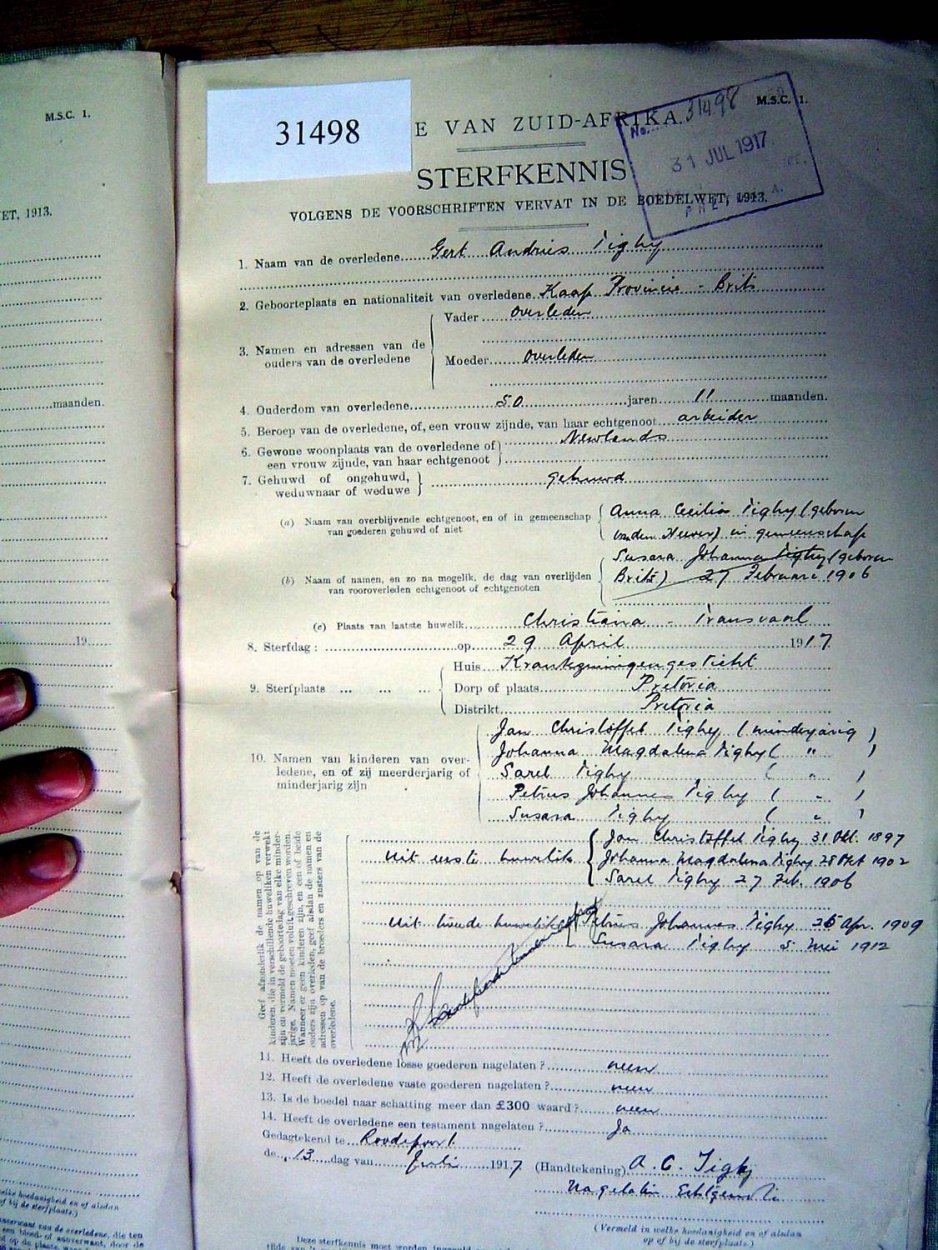 M.S.C. 1.
ET, 1913.
maanden.
19
31498
E VAN ZUID-AFRIKA.
M.S.C. 1.
No. 31498
31 JUL 1917
STERFKENNIS
VOLGENS DE VOORSCHRIFTEN VERVAT IN DE BOEDELWET, 1913.
1. Naam van de overledene Gert Andries Tighy
2. Geboorteplaats en nationaliteit van overledene Kaap Provincie - Brits
3. Namen en adressen van de ouders van de overledene
Vader overleden
Moeder overleden
4. Ouderdom van overledene 50 jaren 11 maanden.
5. Beroep van de overledene, of, een vrouw zijnde, van haar echtgenoot arbeider
6. Gewone woonplaats van de overledene of Newlands
een vrouw zijnde, van haar echtgenoot
7. Gehuwd of ongehuwd, weduwnaar of weduwe gehuwd
(a) Naam van overblijvende echtgenoot, en of in gemeenschap van goederen gehuwd of niet
Anna Cecilia Tighy (geboren
van den Heever) in gemeenschap
(b) Naam of namen, en zo na mogelik, de dag van overlijden van vooroverleden echtgenoot of echtgenoten
Susara Johanna Tighy (geboren
Brits) 27 Februarie 1906
(c) Plaats van laatste huwelik Christiana - Transvaal
8. Sterfdag: op 29 April 1917
9. Sterfplaats
Huis Krankzinnigengesticht
Dorp of plaats Pretoria
Distrikt Pretoria
10. Namen van kinderen van overledene, en of zij meerderjarig of minderjarig zijn
Jan Christoffel Tighy (minderjarig)
Johanna Magdalena Tighy ( " )
Sarel Tighy ( " )
Petrus Johannes Tighy ( " )
Susara Tighy ( " )
Geef afzonderlik de namen op van de
kinderen die in verschillende huweliken verwekt
zijn en vermeld de geboortedag van elke minderjarige.
Namen moeten voluit geschreven worden.
Wanneer er geen kinderen zijn, en een of beide
ouders zijn overleden, geef alsdan de namen en
adressen op van de broeders en zusters van de
overledene.
Uit eerste huwelik
Jan Christoffel Tighy 31 Okt. 1897
Johanna Magdalena Tighy 28 Okt 1902
Sarel Tighy 27 Feb. 1906
Uit tweede huwelik
Petrus Johannes Tighy 26 Apr. 1909
Susara Tighy 5 Mei 1912
11. Heeft de overledene losse goederen nagelaten? neen
12. Heeft de overledene vaste goederen nagelaten? neen
13. Is de boedel naar schatting meer dan £300 waard? neen
14. Heeft de overledene een testament nagelaten? Ja
Gedagtekend te Roodepoort
de 13 dag van Juli 1917 (Handtekening) A. C. Tighy
Nagelaten Echtgenote
(Vermeld in welke hoedanigheid en of alsdan
op of bij de sterfplaats.)